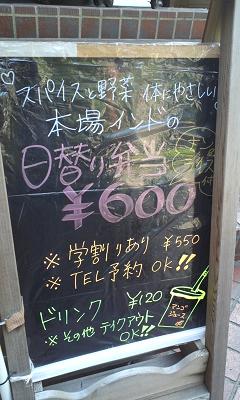 スパイスと野菜 体にやさしい
本場インドの
日替り弁当
¥600
※ 学割りあり ¥550
※ TEL予約 OK!!
ドリンク ¥120
※ その他 テイクアウト
OK!!
マンゴ
ジュース